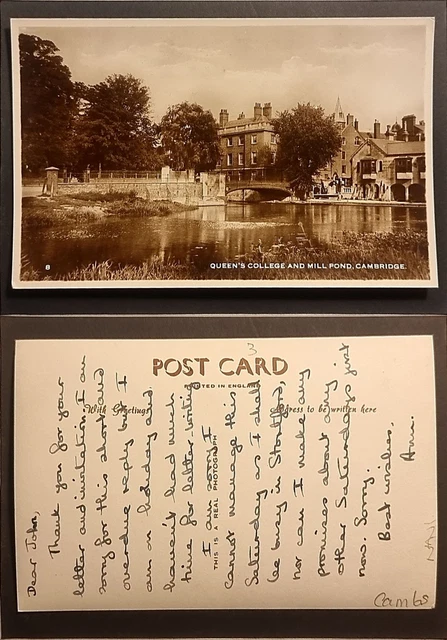 8
QUEEN'S COLLEGE AND MILL POND, CAMBRIDGE.
POST CARD
PRINTED IN ENGLAND
With Greetings
Address to be written here
THIS IS A REAL PHOTOGRAPH
Dear John,
Thank you for your
letter and invitation. I am
sorry for this short and
overdue reply but I
am on holiday and
haven't had much
time for letter writing.
I am sorry I
cannot manage this
Saturday as I shall
be busy in Stortford,
nor can I make any
promises about any
other Saturdays just
now. Sorry.
Best wishes,
Ann.
Cambs